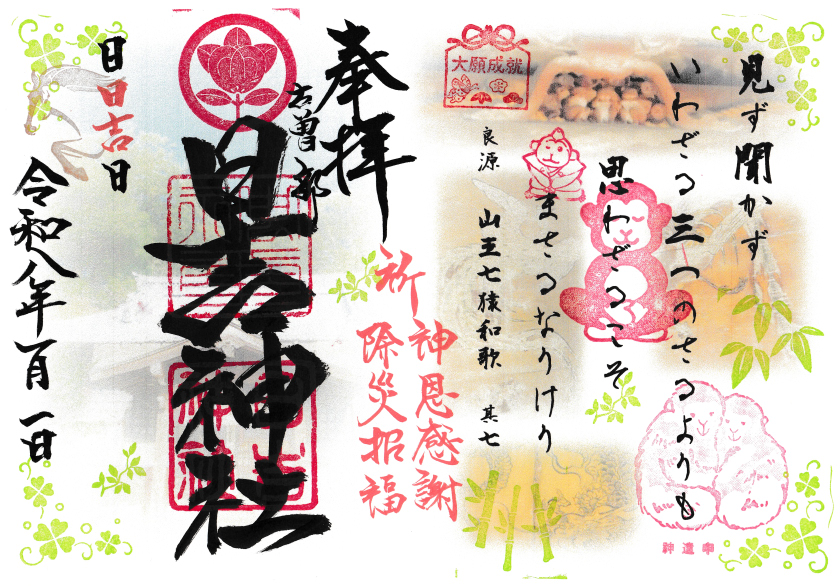 見ず聞かず
いわざる三つのさるよりも
思わざるこそ
まさるなりけり
良源　山王七猿和歌　其七
大願成就
神遣申
奉拝
古曽部
日吉神社
祈
神恩感謝
除災招福
日日吉日
令和八年一月一日